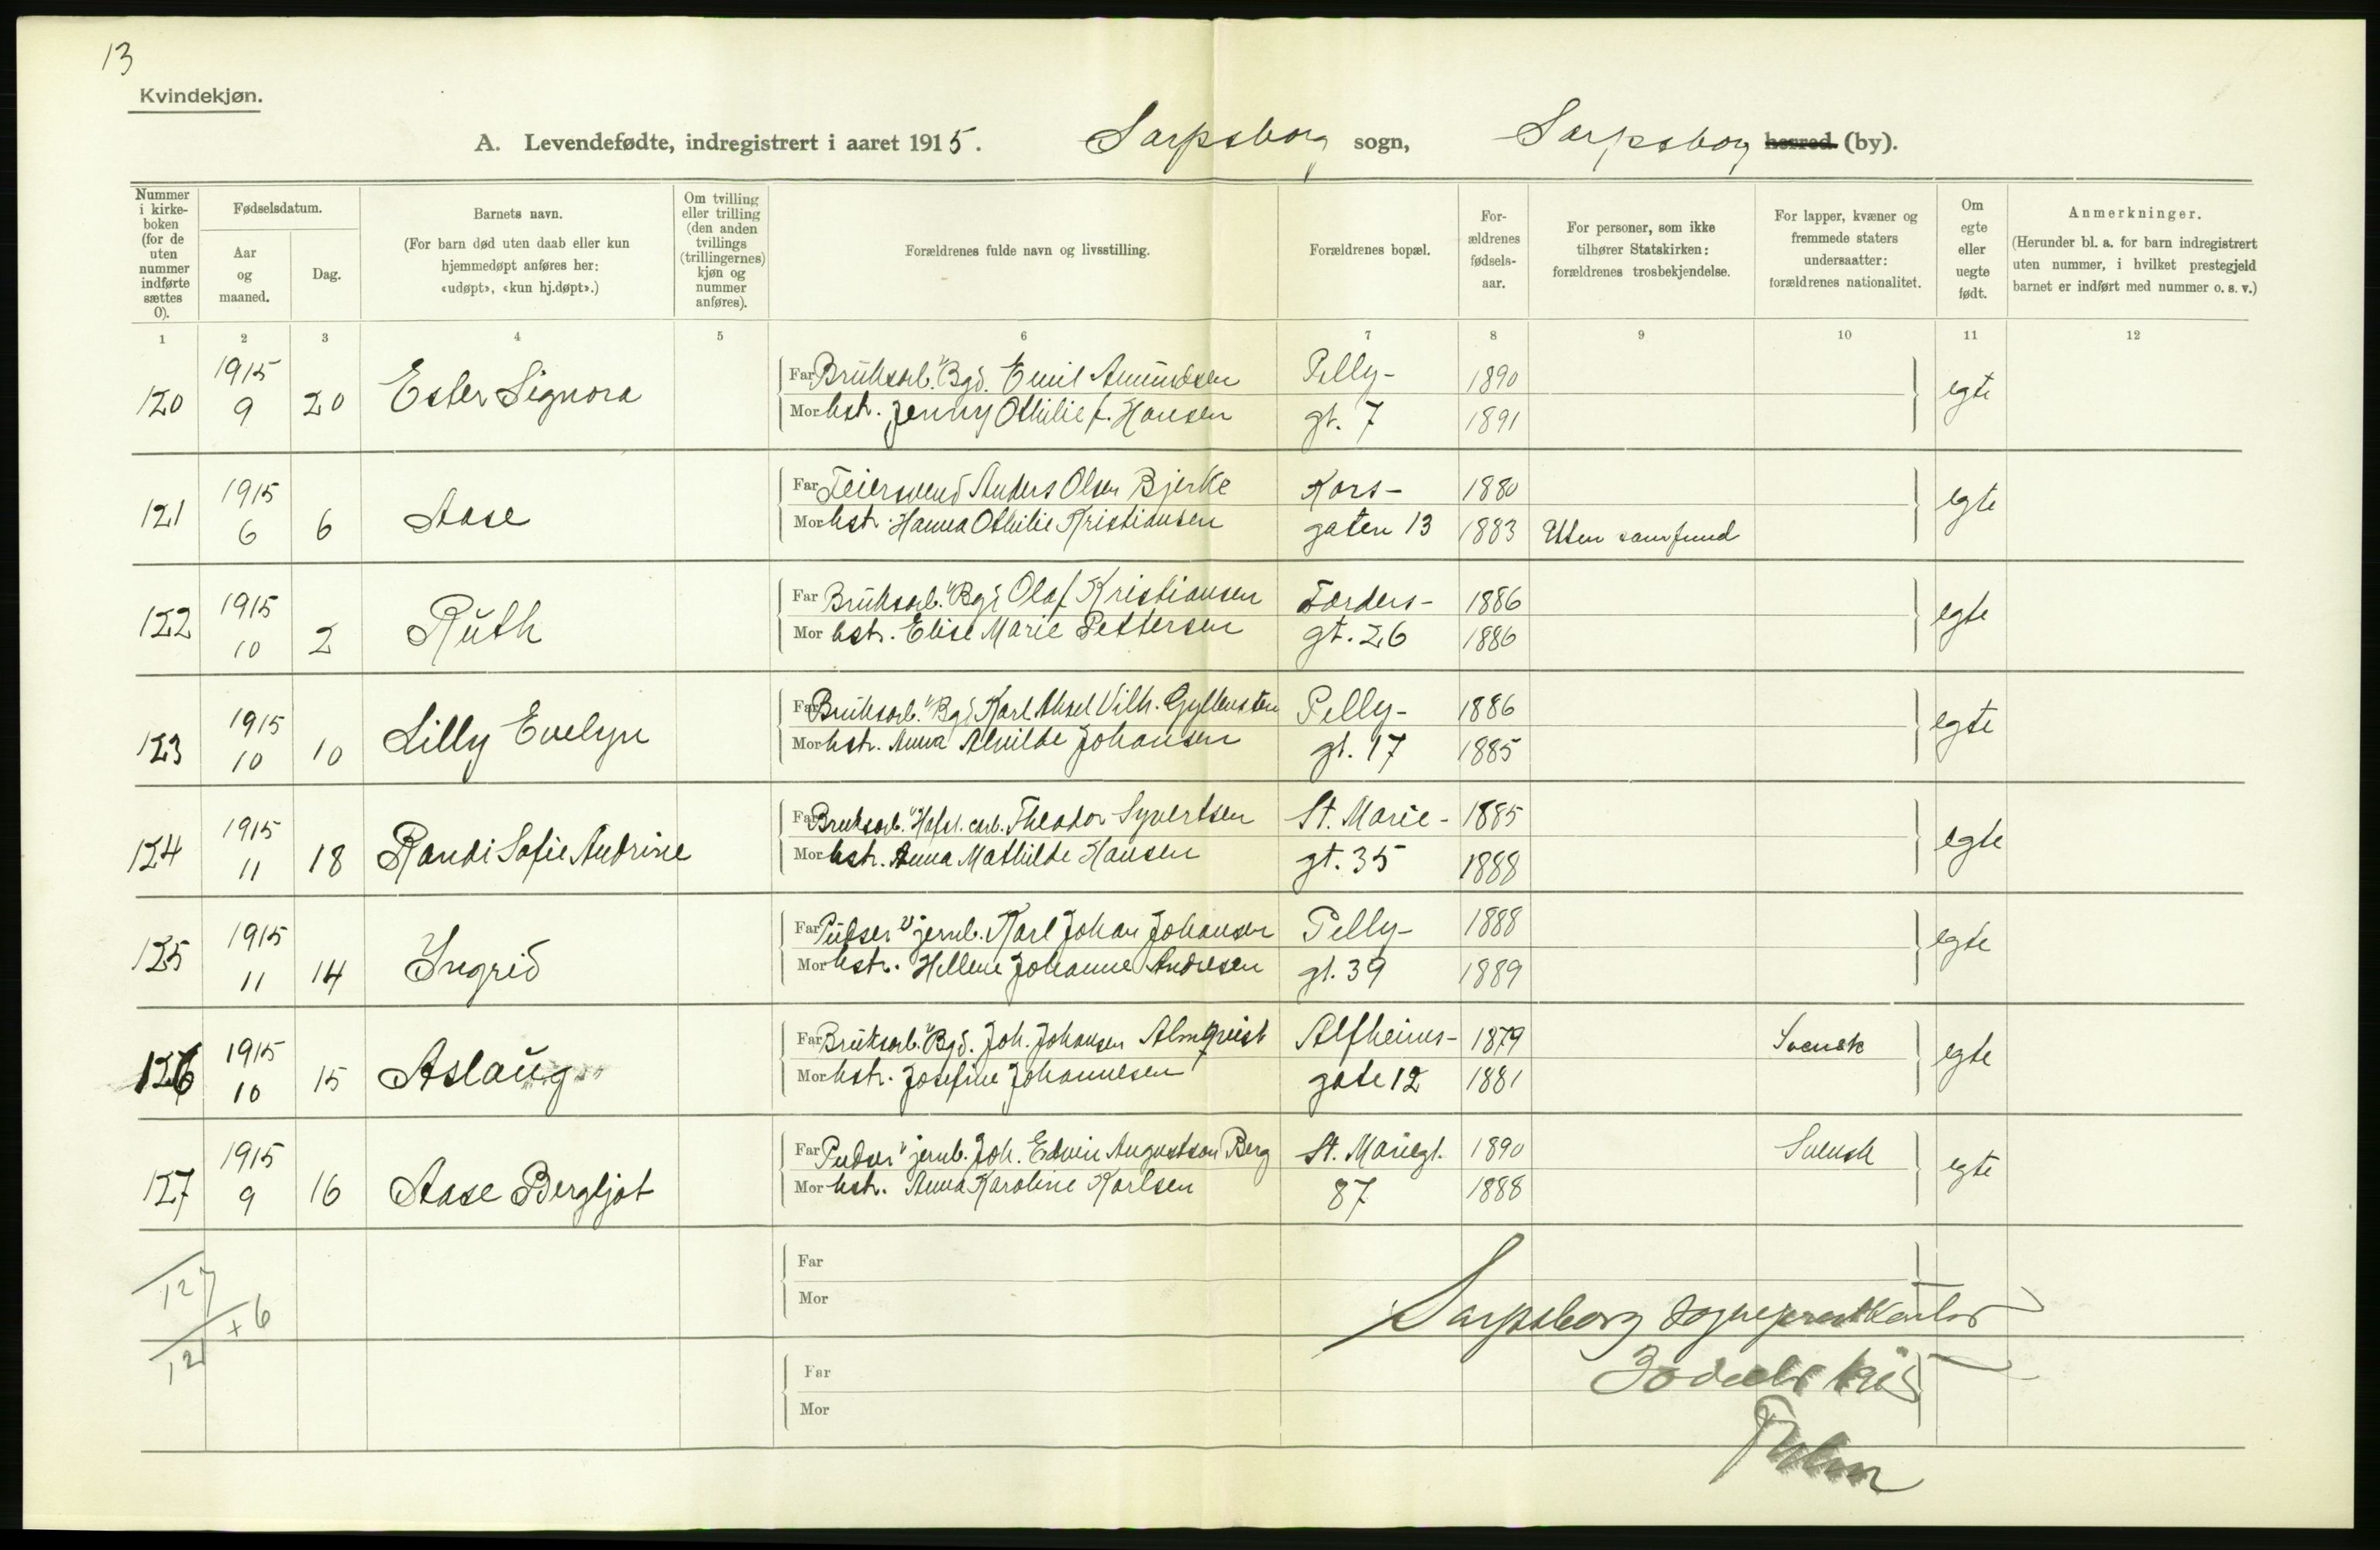 13
Kvindekjøn.
A. Levendefødte, indregistrert i aaret 1915. Sarpsborg sogn, Sarpsborg herred (by).
Nummer i kirke-boken (for de uten nummer indførte sættes 0).
Fødselsdatum.
Aar og maaned.
Dag.
Barnets navn.
(For barn død uten daab eller kun hjemmedøpt anføres her: «udøpt», «kun hj.døpt».)
Om tvilling eller trilling (den anden tvillings (trillingernes) kjøn og nummer anføres).
Forældrenes fulde navn og livsstilling.
Forældrenes bopæl.
For-ældrenes fødsels-aar.
For personer, som ikke tilhører Statskirken: forældrenes trosbekjendelse.
For lapper, kvæner og fremmede staters undersaatter: forældrenes nationalitet.
Om egte eller uegte født.
Anmerkninger.
(Herunder bl. a. for barn indregistrert uten nummer, i hvilket prestegjeld barnet er indført med nummer o. s. v.)
1 2 3 4 5 6 7 8 9 10 11 12
120 1915 9 20 Ester Signora Far Bruksarb. v/ Bgd. Emil Amundsen Pelly- 1890 egte
Mor hstr. Jenny Othilie f. Hansen gt. 7 1891
121 1915 6 6 Aase Far Feiersvend Anders Olsen Bjerke Kors- 1880 egte
Mor hstr. Hanna Othilie Kristiansen gaten 13 1883 Uten samfund
122 1915 10 2 Ruth Far Bruksarb. v/ Bgd Olaf Kristiansen Tordens- 1886 egte
Mor hstr. Elise Marie Pettersen gt. 26 1886
123 1915 10 10 Lilly Evelyn Far Bruksarb. v/ Bgd Karl Aksel Vilh. Gyllensten Pelly- 1886 egte
Mor hstr. Anna Alvilde Johansen gt. 17 1885
124 1915 11 18 Randi Sofie Andrine Far Bruksarb. v/ Hafsl. carb. Theodor Syvertsen St. Marie- 1885 egte
Mor hstr. Anna Mathilde Hansen gt. 35 1888
125 1915 11 14 Ingrid Far Pudser v/ jernb. Karl Johan Johansen Pelly- 1888 egte
Mor hstr. Hellene Johanne Andresen gt. 39 1889
126 1915 10 15 Aslaug Far Bruksarb. v/ Bgd. Joh. Johansen Almqvist Alfheims- 1879 Svensk egte
Mor hstr. Josefine Johannesen gate 12 1881
127 1915 9 16 Aase Bergljot Far Pudser v/ jernb. Joh. Edwin Augustson Berg St. Mariegt. 1890 Svensk egte
Mor hstr. Anna Karoline Karlsen 87 1888
Far
127
+6
Mor
Sarpsborg sogneprestkontor
121
Far
Mor